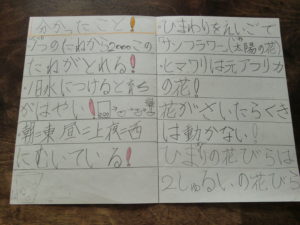 分かったこと!
1つのたねから2000この
たねがとれる!
1日水につけると育ち
がはやい!
朝=東昼=上夜=西
にむいている!
・ひまわりをえいごで
サンフラワー(太陽の花)
・ヒマワリは元アフリカ
の花!
花がさいたらくき
は動かない!
ひまわりの花びらは
2しゅるいの花びら